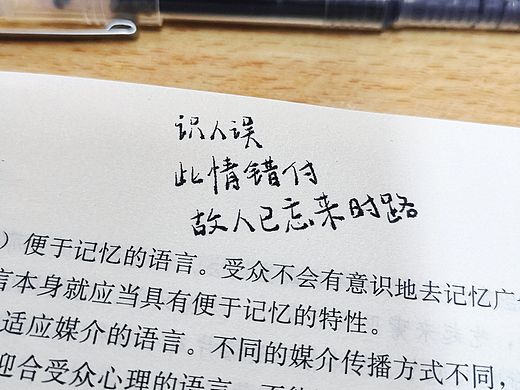 识人误
此情错付
故人已忘来时路
）便于记忆的语言。受众不会有意识地去记忆广
言本身就应当具有便于记忆的特性。
适应媒介的语言。不同的媒介传播方式不同，
迎合受众心理的语言。